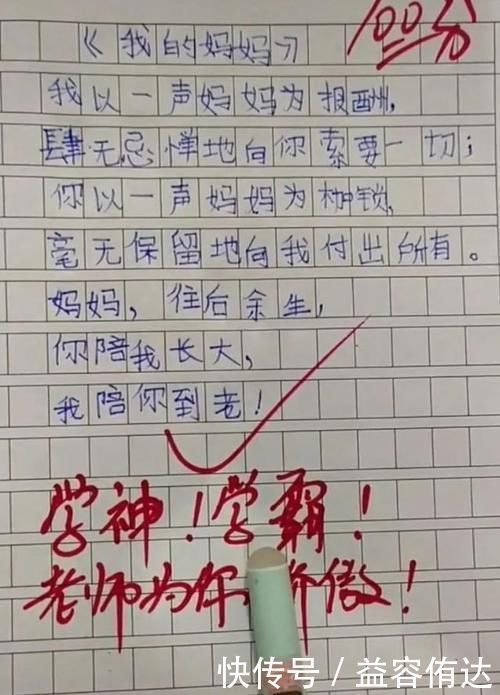 《我的妈妈》
100分
我以一声妈妈为报酬,
肆无忌惮地向你索要一切;
你以一声妈妈为枷锁,
毫无保留地向我付出所有。
妈妈,往后余生,
你陪我长大,
我陪你到老!
学神!学霸!
老师为你傲!
快传号/益容侑达